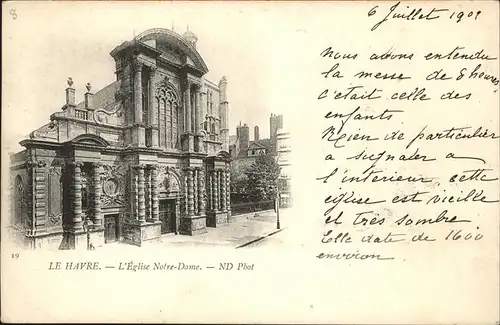 8
6 Juillet 1901
Nous avons entendu
la messe de 8 heures
c'était celle des
enfants
Rien de particulier
a signaler a
l'intérieur, cette
église est vieille
et très sombre
Elle date de 1600
environ
19
LE HAVRE. — L'Église Notre-Dame. — ND Phot